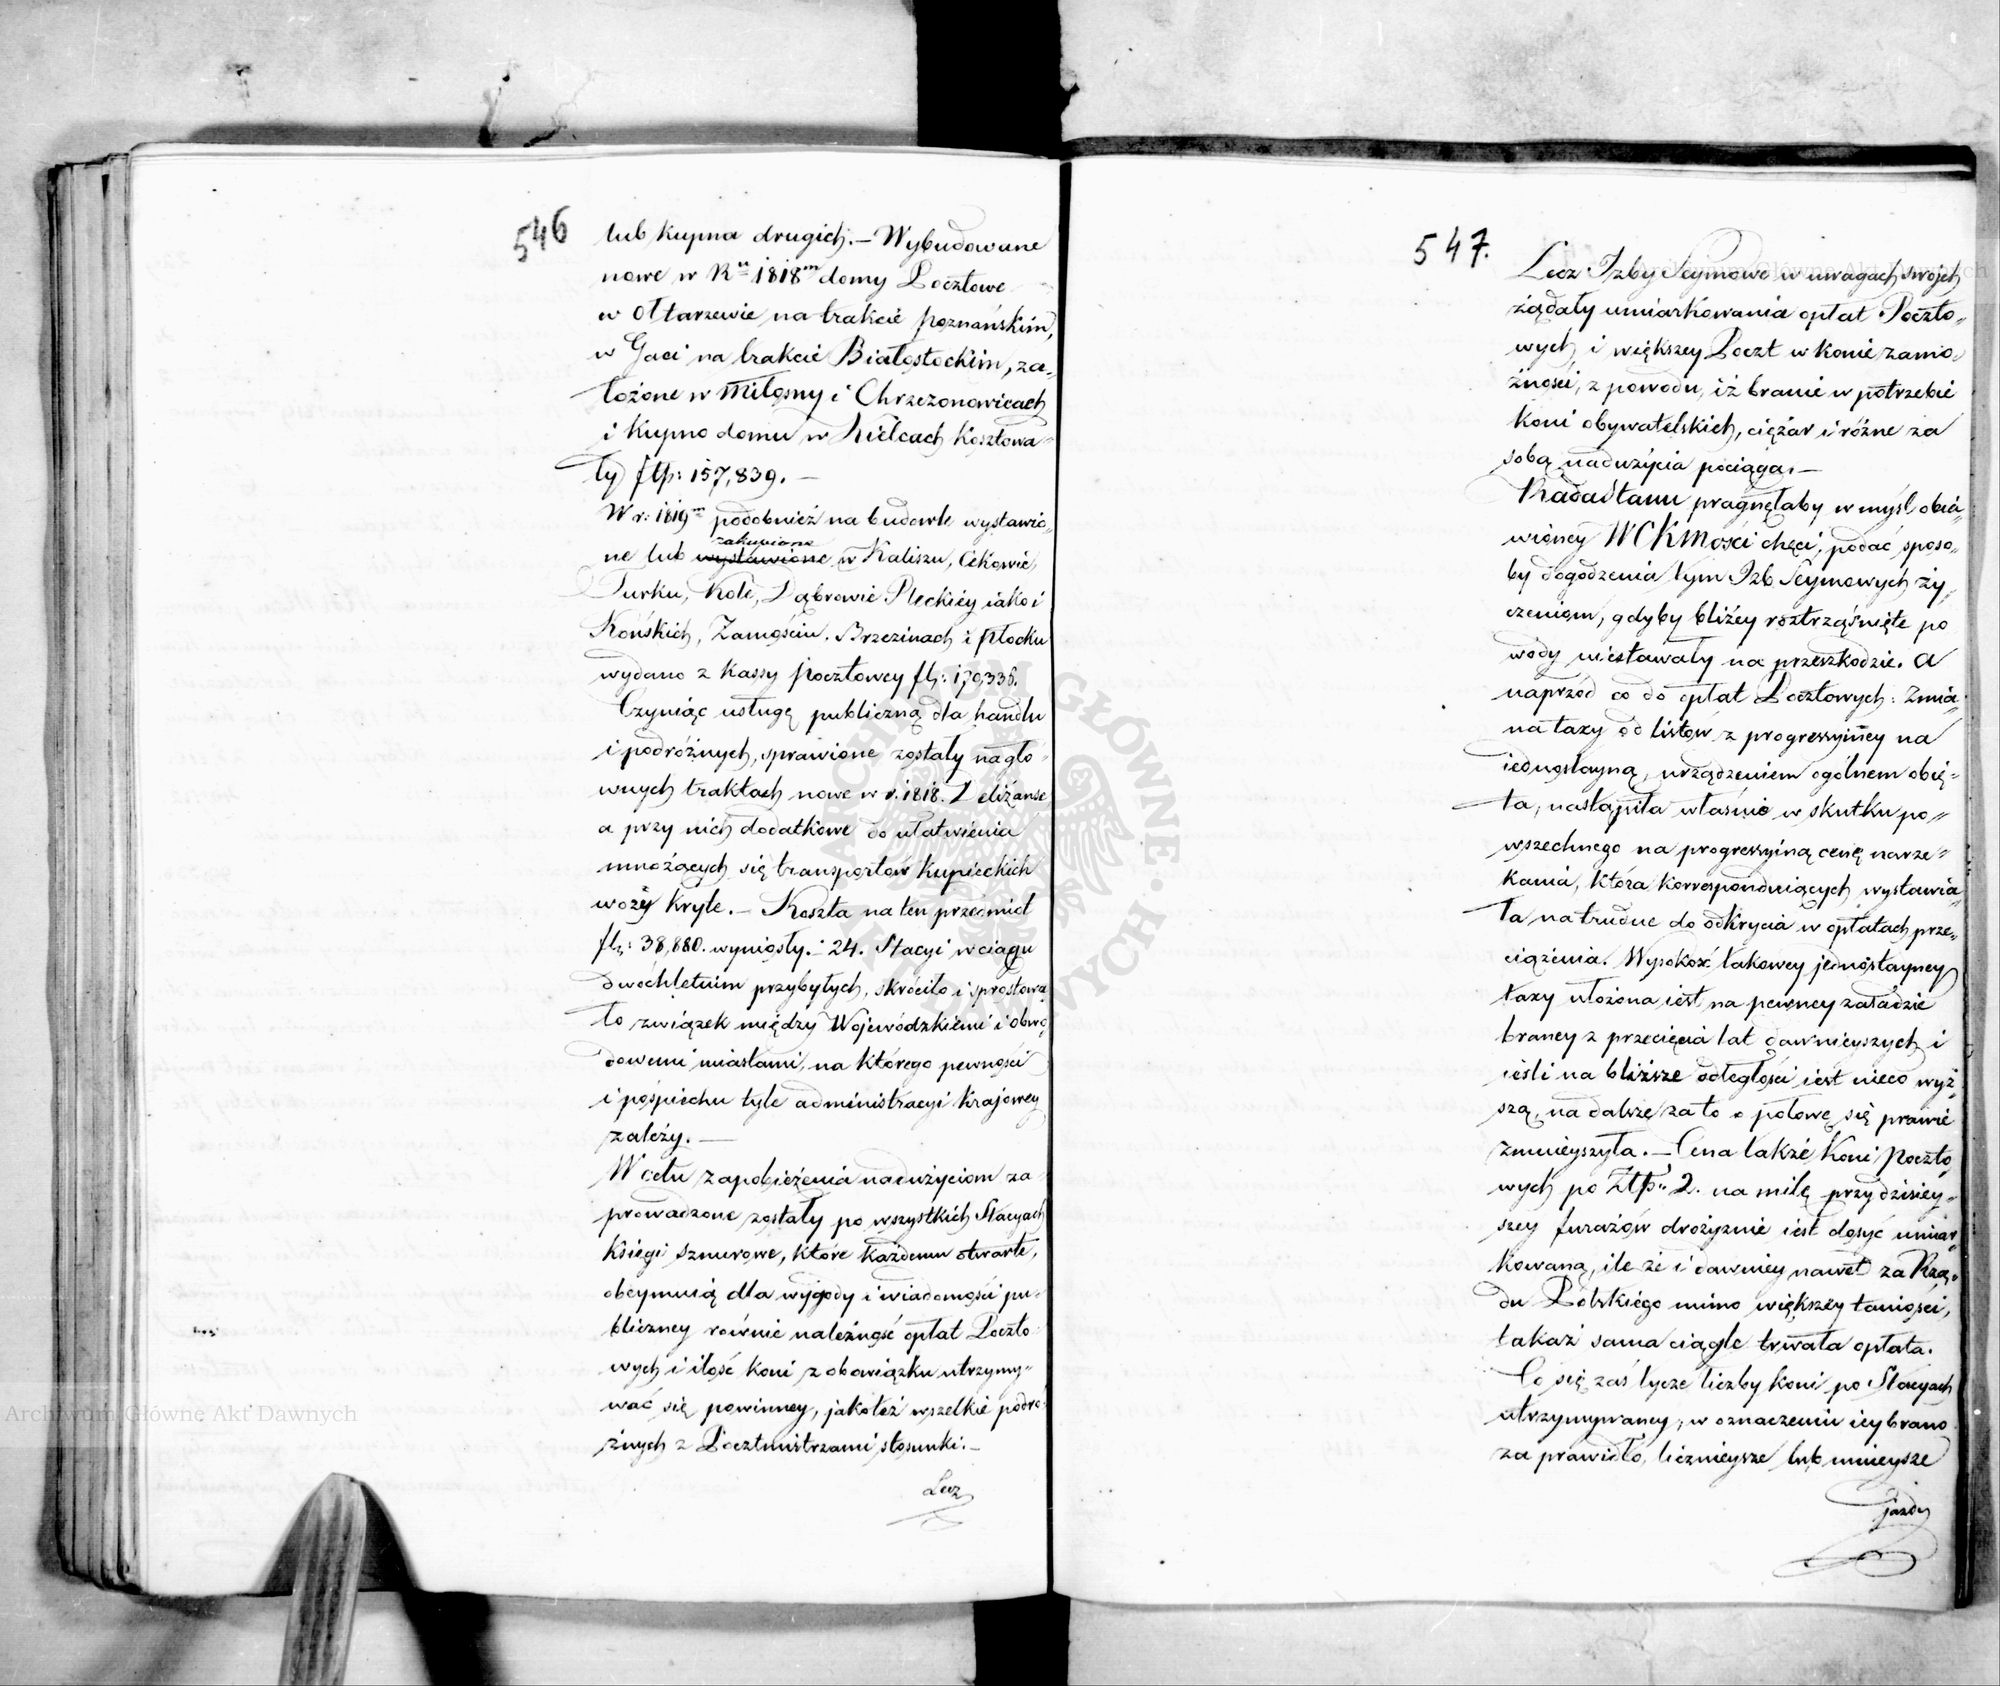 546
lub kupna drugich. — Wybudowane
nowe w Ru 1818m domy Pocztowe
w Ołtarzewie na trakcie poznańskim,
w Gaci na trakcie Białostockim, za„
łożone w Miłosny i Chrzczonowicach
i kupno domu w Kielcach kosztowa„
ły fłp: 157,839. —
W r: 1819m podobnież na budowle wystawio„
zakupione
ne lub wystawione w Kaliszu, Cekowie,
Turku, Kole, Dąbrowie Pleckiéy iako i
Końskich, Zamościu, Brzezinach i Płocku
wydano z Kassy pocztowey fł:
Czyniąc usługę publiczną dla handlu
i podróżnych, sprawione zostały na gło„
wnych traktach nowe w r. 1818. Deliżanse
a przy nich dodatkowe do ułatwienia
mnożących się transportów kupieckich
wozy kryte. — Koszta na ten przedmiot
fł: 38,880. wyniosły. — 24. Stacyi w ciągu
dwóchletnim przybyłych, skróciło i sprostowa
ło związek między Wojewódzkiemi i obwo
dowemi miastami, na którego pewności
i pośpiechu tyle administracyi krajowey
zależy. —
W celu zapobieżenia nadużyciom za
prowadzone zostały po wszystkich Stacyach
księgi sznurowe, które każdemu otwarte,
obeymuią dla wygody i wiadomości pu„
bliczney równie należność opłat Poczto„
wych i ilość koni z obowiązku utrzymy„
wać się powinney, jakoteż wszelkie podró„
żnych z Pocztmistrzami stosunki. —
Lecz
547.
Lecz Izby Seymowe w uwagach swojch
żądały umiarkowania opłat Poczto„
wych, i większey Poczt w konie zamo„
żności, z powodu, iż branie w potrzebie
koni obywatelskich, ciężar i różne za
sobą nadużycia pociąga. —
Rada Stanu pragnęłaby w myśl obia„
wioney WCKMości chęci, podać sposo„
by dogodzenia tym Izb Seymowych ży„
czeniom, gdyby bliżey roztrząśnięte po
wody niestawały na przeszkodzie. a
naprzód co do opłat Pocztowych: Zmia„
na taxy od listów z progressyiney na
iednostayną, urządzeniem ogólnem obię„
ta, nastąpiła właśnie w skutku po„
wszechnego na progressyiną cenę narze„
kania, która korrespondujących wystawia„
ła na trudne do odkrycia w opłatach prze„
ciążenia. Wysokość takowey jednostayney
taxy ułożona iest na pewney zasadzie
braney z przecięcia lat dawnieyszych i
ieśli na bliższe odległości iest nieco wyż„
szą, na dalsze za to o połowę się prawie
zmnieyszyła. — Cena także koni poczto„
wych po Złtp. 2. na milę przy dzisiey„
szey furażów drożyznie iest dosyć umiar„
kowaną, ile że i dawniey nawet za Rzą„
du Polskiego mimo większey taniości,
takaż sama ciągle trwała opłata.
Co się zaś tycze liczby koni po Stacyach
utrzymywaney, w oznaczeniu iey brano
za prawidło, licznieysze lub mnieysze
jazdy
Archiwum Główne Akt Dawnych